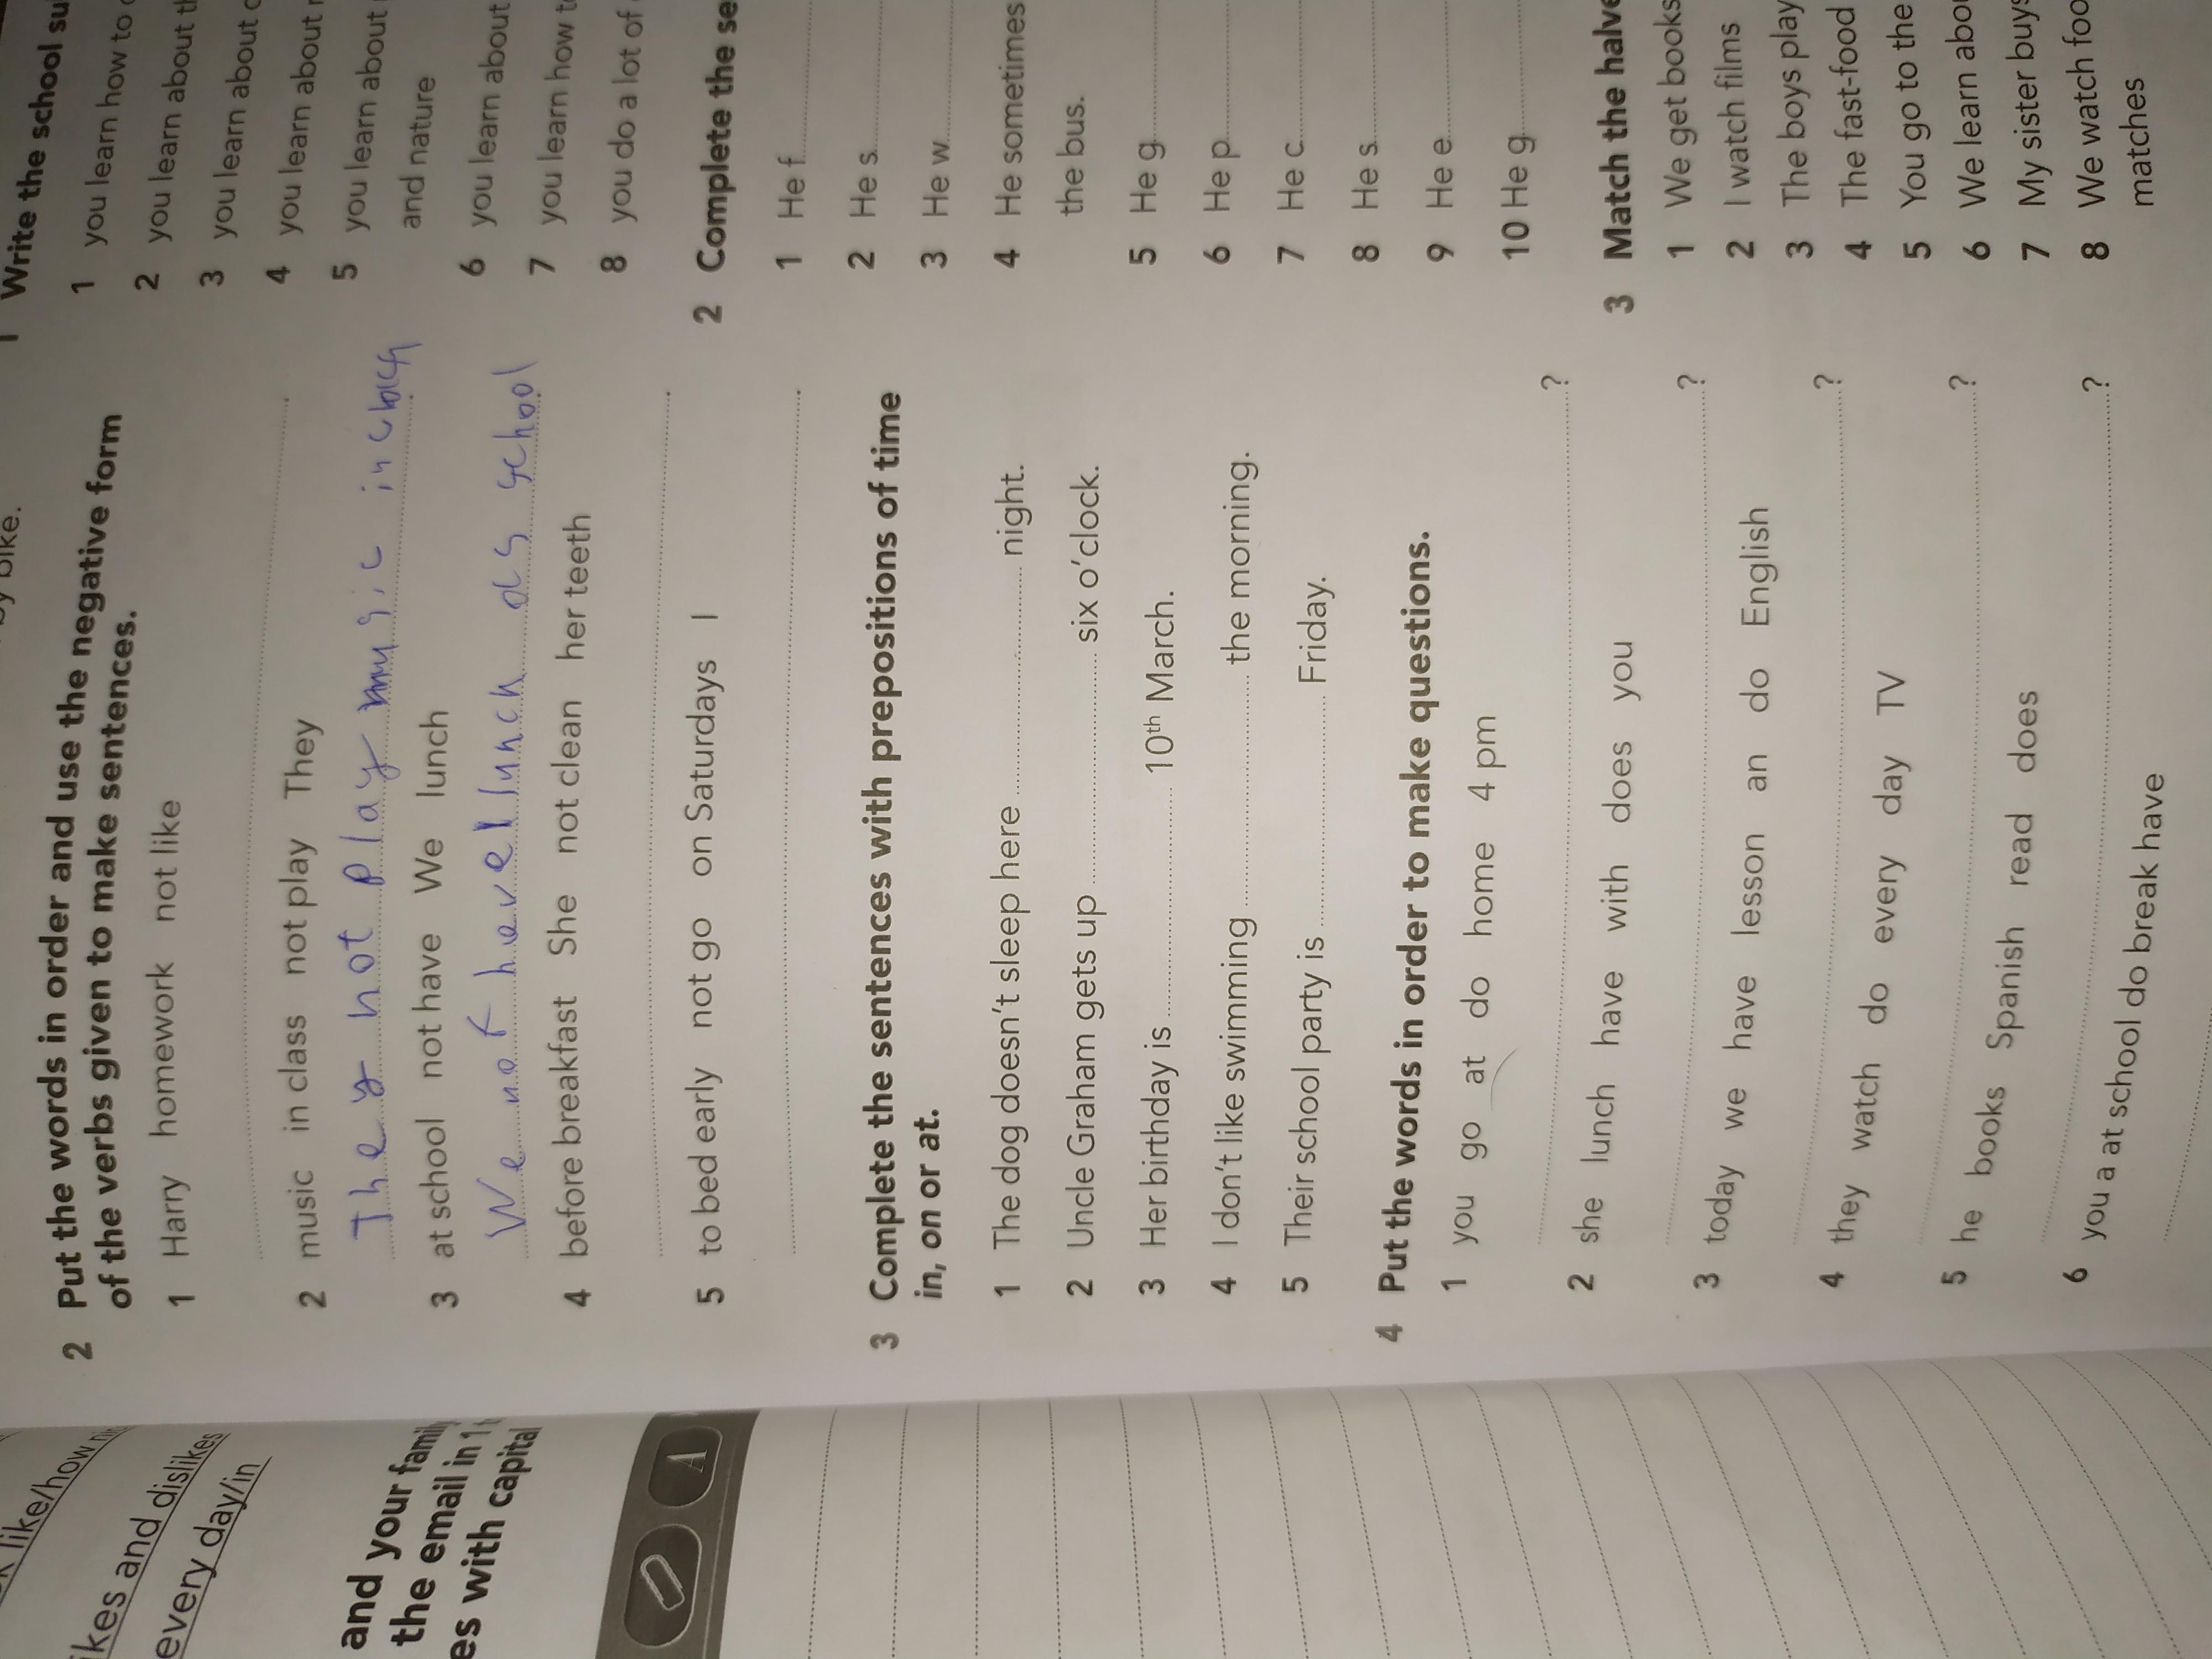 like/how
ikes and dislikes
every day/in
and your family
the email in 1
es with capital
A
by bike.
2 Put the words in order and use the negative form
of the verbs given to make sentences.
1 Harry homework not like
2 music in class not play They
They not play music in
3 at school not have We lunch
We not have lunch as school
4 before breakfast She not clean her teeth
5 to bed early not go on Saturdays I
3 Complete the sentences with prepositions of time
in, on or at.
1 The dog doesn't sleep here ............ night.
2 Uncle Graham gets up ............ six o'clock.
3 Her birthday is ............ 10th March.
4 I don't like swimming ............ the morning.
5 Their school party is ............ Friday.
4 Put the words in order to make questions.
1 you go at do home 4 pm
?
2 she lunch have with does you
?
3 today we have lesson an do English
?
4 they watch do every day TV
?
5 he books Spanish read does
?
6 you a at school do break have
1 Write the school su
1 you learn how to
2 you learn about th
3 you learn about
4 you learn about
5 you learn about
and nature
6 you learn about
7 you learn how t
8 you do a lot of
2 Complete the se
1 He f
2 He s
3 He w
4 He sometimes
the bus.
5 He g
6 He p
7 He c
8 He s
9 He e
10 He g
3 Match the halve
1 We get books
2 I watch films
3 The boys play
4 The fast-food
5 You go to the
6 We learn abou
7 My sister buys
8 We watch foo
matches